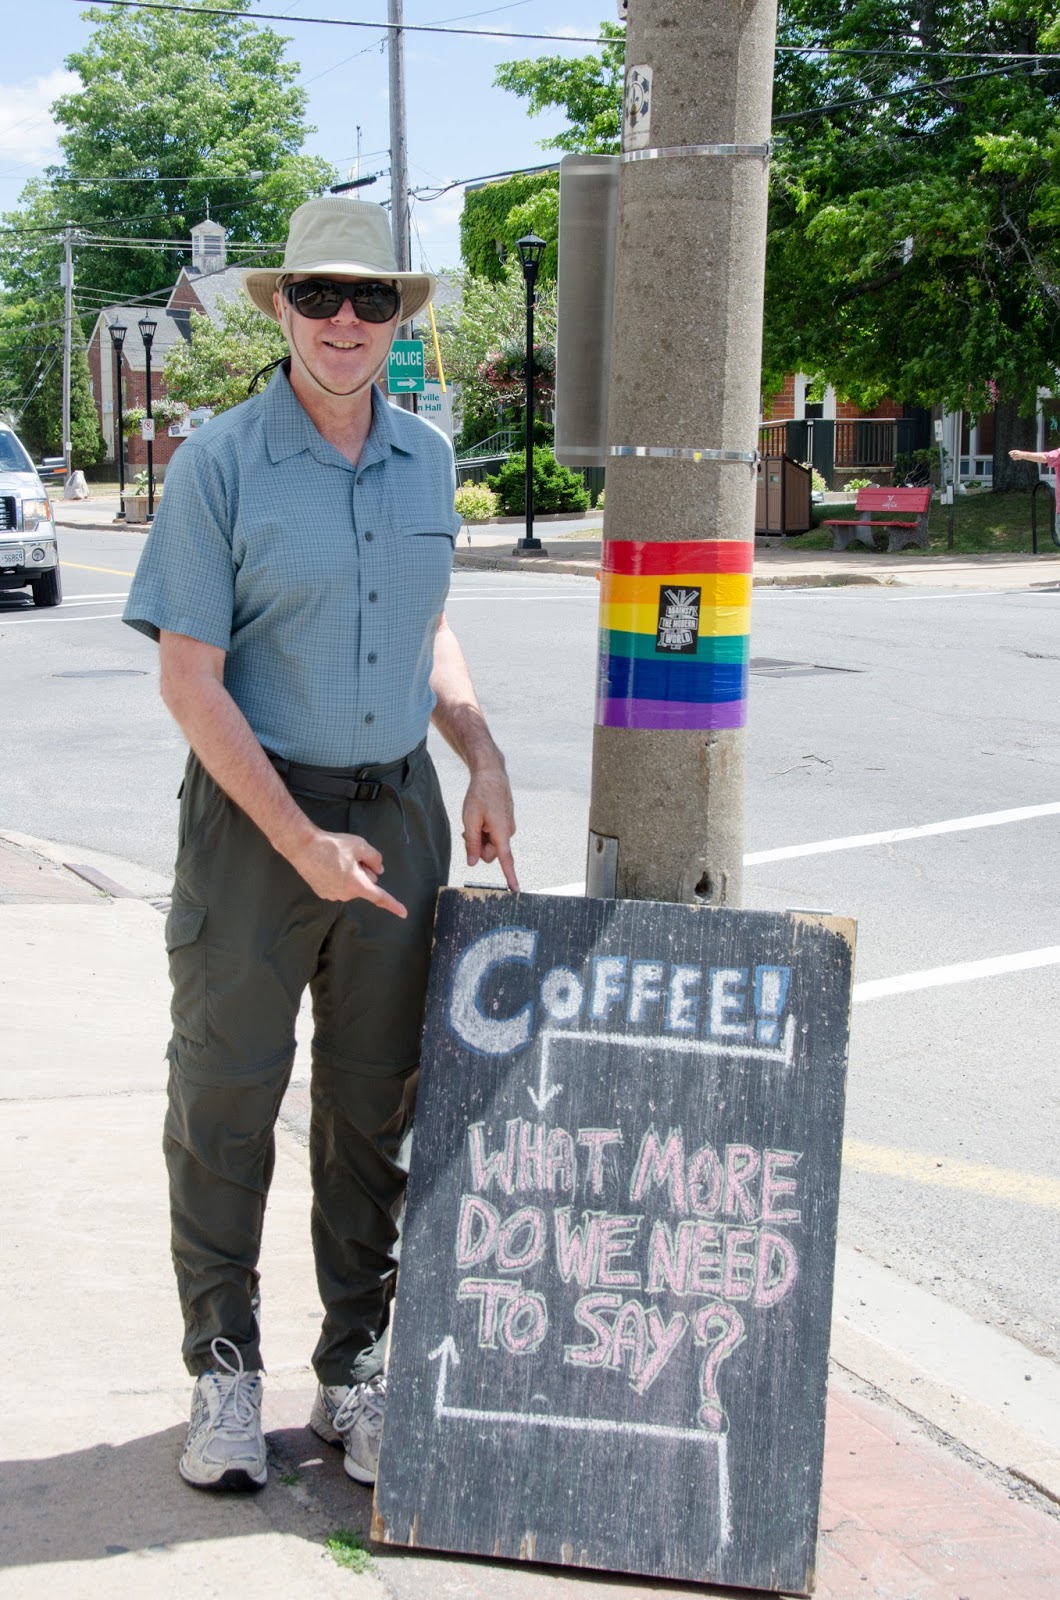 POLICE
fville
n Hall
AGAINST
THE MODERN
WORLD
COFFEE!
WHAT MORE
DO WE NEED
TO SAY?